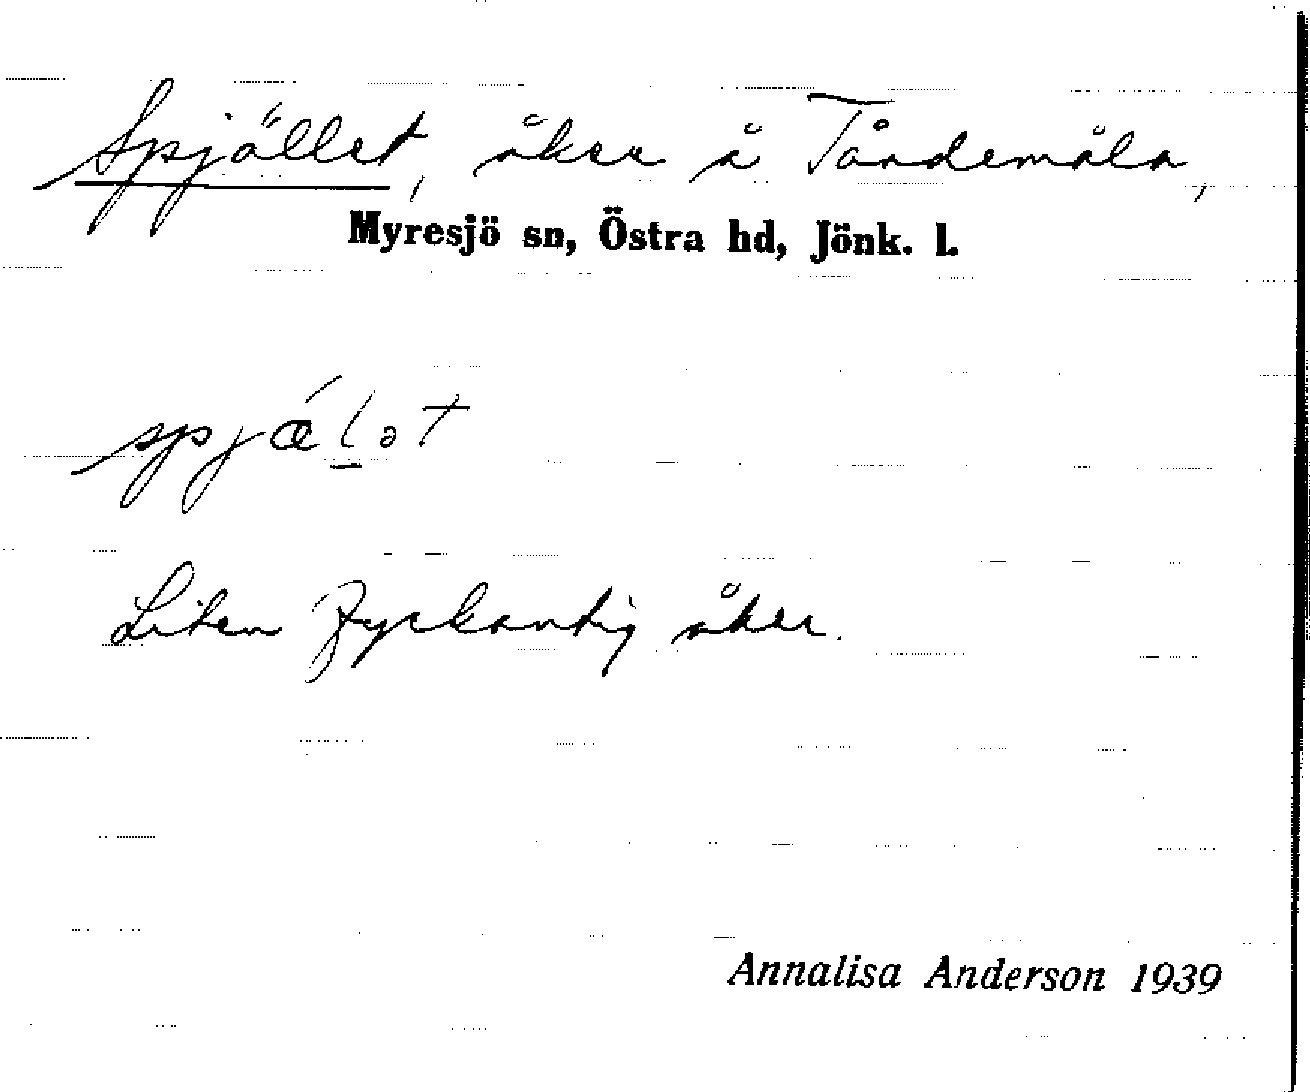 Spjället, åker å Tårdemåla,
Myresjö sn, Östra hd, Jönk. l.
spjǽl̲ət
Liten fyrkantig åker.
Annalisa Anderson 1939